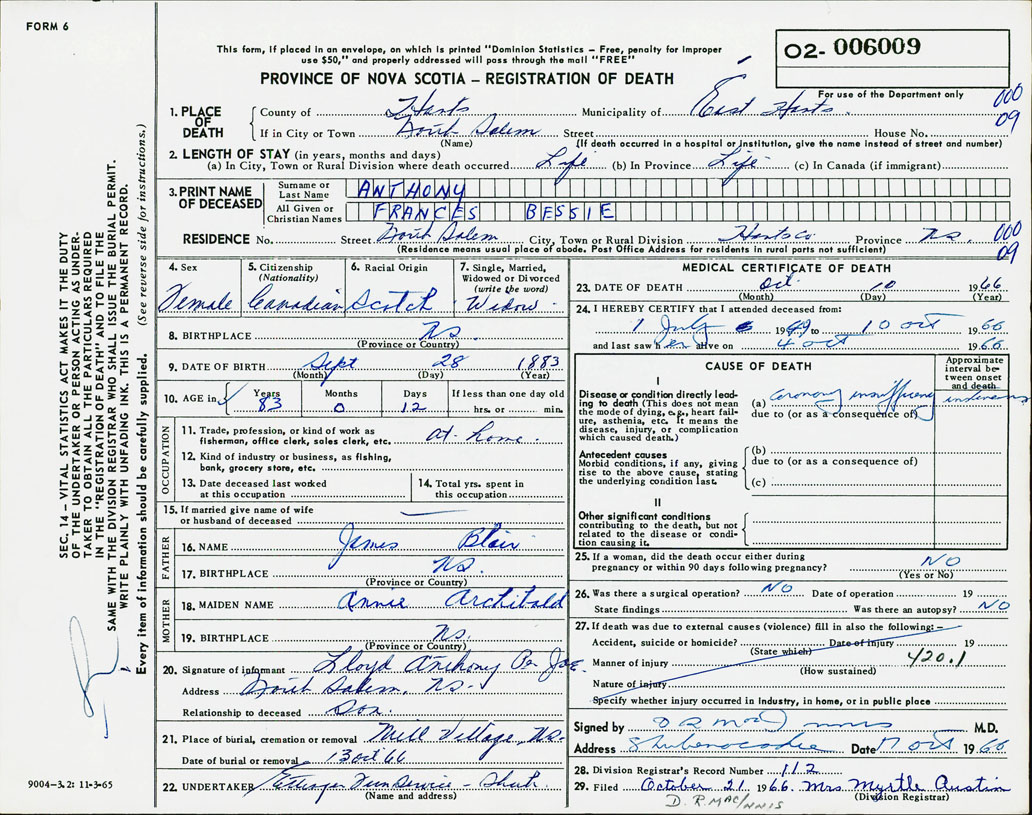 FORM 6
This form, if placed in an envelope, on which is printed "Dominion Statistics – Free, penalty for improper
use $50," and properly addressed will pass through the mail "FREE"
PROVINCE OF NOVA SCOTIA – REGISTRATION OF DEATH
O2- 006009
For use of the Department only
000
09
1. PLACE OF DEATH
County of Hants Municipality of East Hants
If in City or Town North Salem Street House No.
(Name) (If death occurred in a hospital or institution, give the name instead of street and number)
2. LENGTH OF STAY (in years, months and days)
(a) In City, Town or Rural Division where death occurred Life (b) In Province Life (c) In Canada (if immigrant)
3. PRINT NAME OF DECEASED
Surname or Last Name ANTHONY
All Given or Christian Names FRANCES BESSIE
RESIDENCE No. Street North Salem City, Town or Rural Division Hants Co Province NS.
(Residence means usual place of abode. Post Office Address for residents in rural parts not sufficient)
000
09
4. Sex Female
5. Citizenship (Nationality) Canadian
6. Racial Origin Scotch
7. Single, Married, Widowed or Divorced (write the word) Widow
8. BIRTHPLACE NS.
(Province or Country)
9. DATE OF BIRTH Sept 28 1883
(Month) (Day) (Year)
10. AGE in Years 83 Months 0 Days 12 If less than one day old hrs. or min.
OCCUPATION
11. Trade, profession, or kind of work as fisherman, office clerk, sales clerk, etc. at home.
12. Kind of industry or business, as fishing, bank, grocery store, etc.
13. Date deceased last worked at this occupation
14. Total yrs. spent in this occupation
15. If married give name of wife or husband of deceased
FATHER
16. NAME James Blair
17. BIRTHPLACE NS.
(Province or Country)
MOTHER
18. MAIDEN NAME Annie Archibald
19. BIRTHPLACE NS.
(Province or Country)
20. Signature of informant Lloyd Anthony Per
Address North Salem, NS.
Relationship to deceased Son.
21. Place of burial, cremation or removal Mill Village, NS.
Date of burial or removal 13 Oct 66
22. UNDERTAKER Ettinger
(Name and address)
MEDICAL CERTIFICATE OF DEATH
23. DATE OF DEATH Oct. 10 1966
(Month) (Day) (Year)
24. I HEREBY CERTIFY that I attended deceased from:
1 July 1949 to 10 Oct 1966
and last saw her alive on 4 Oct 1966
CAUSE OF DEATH
Approximate interval between onset and death
I
Disease or condition directly leading to death (This does not mean the mode of dying, e.g., heart failure, asthenia, etc. It means the disease, injury, or complication which caused death.)
(a) Coronary insufficiency
due to (or as a consequence of)
Antecedent causes
Morbid conditions, if any, giving rise to the above cause, stating the underlying condition last.
(b)
due to (or as a consequence of)
(c)
II
Other significant conditions contributing to the death, but not related to the disease or condition causing it.
25. If a woman, did the death occur either during pregnancy or within 90 days following pregnancy? NO
(Yes or No)
26. Was there a surgical operation? NO Date of operation 19
State findings Was there an autopsy? NO
27. If death was due to external causes (violence) fill in also the following: –
Accident, suicide or homicide? Date of injury 19
(State which)
Manner of injury 420.1
(How sustained)
Nature of injury
Specify whether injury occurred in industry, in home, or in public place
Signed by D R MacInnis M.D.
Address Shubenacadie Date 17 Oct 1966
28. Division Registrar's Record Number 112
29. Filed October 21 1966 Mrs Myrtle Austin
(Division Registrar)
D. R. MACINNIS
SEC. 14 – VITAL STATISTICS ACT MAKES IT THE DUTY
OF THE UNDERTAKER OR PERSON ACTING AS UNDER-
TAKER TO OBTAIN ALL THE PARTICULARS REQUIRED
IN THE "REGISTRATION OF DEATH" AND TO FILE THE
SAME WITH THE DIVISION REGISTRAR WHO SHALL ISSUE THE BURIAL PERMIT.
WRITE PLAINLY WITH UNFADING INK. THIS IS A PERMANENT RECORD.
Every item of information should be carefully supplied. (See reverse side for instructions.)
9004–3.2: 11-3-65